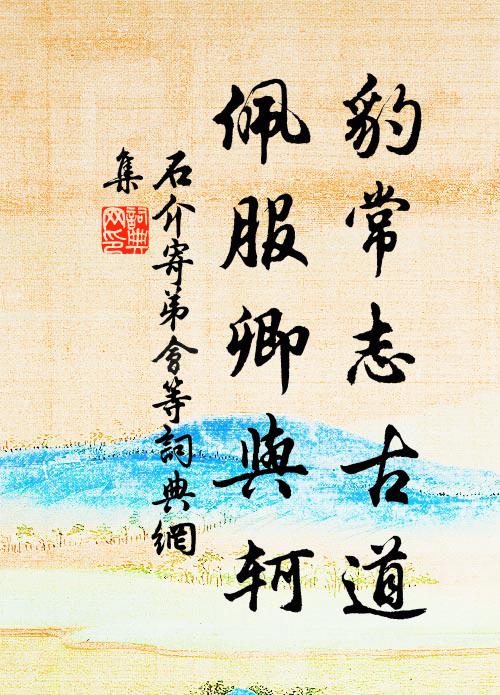 豹常志古道
佩服卿與軻
石介寄弟會等詞典網
集
詞典
网印